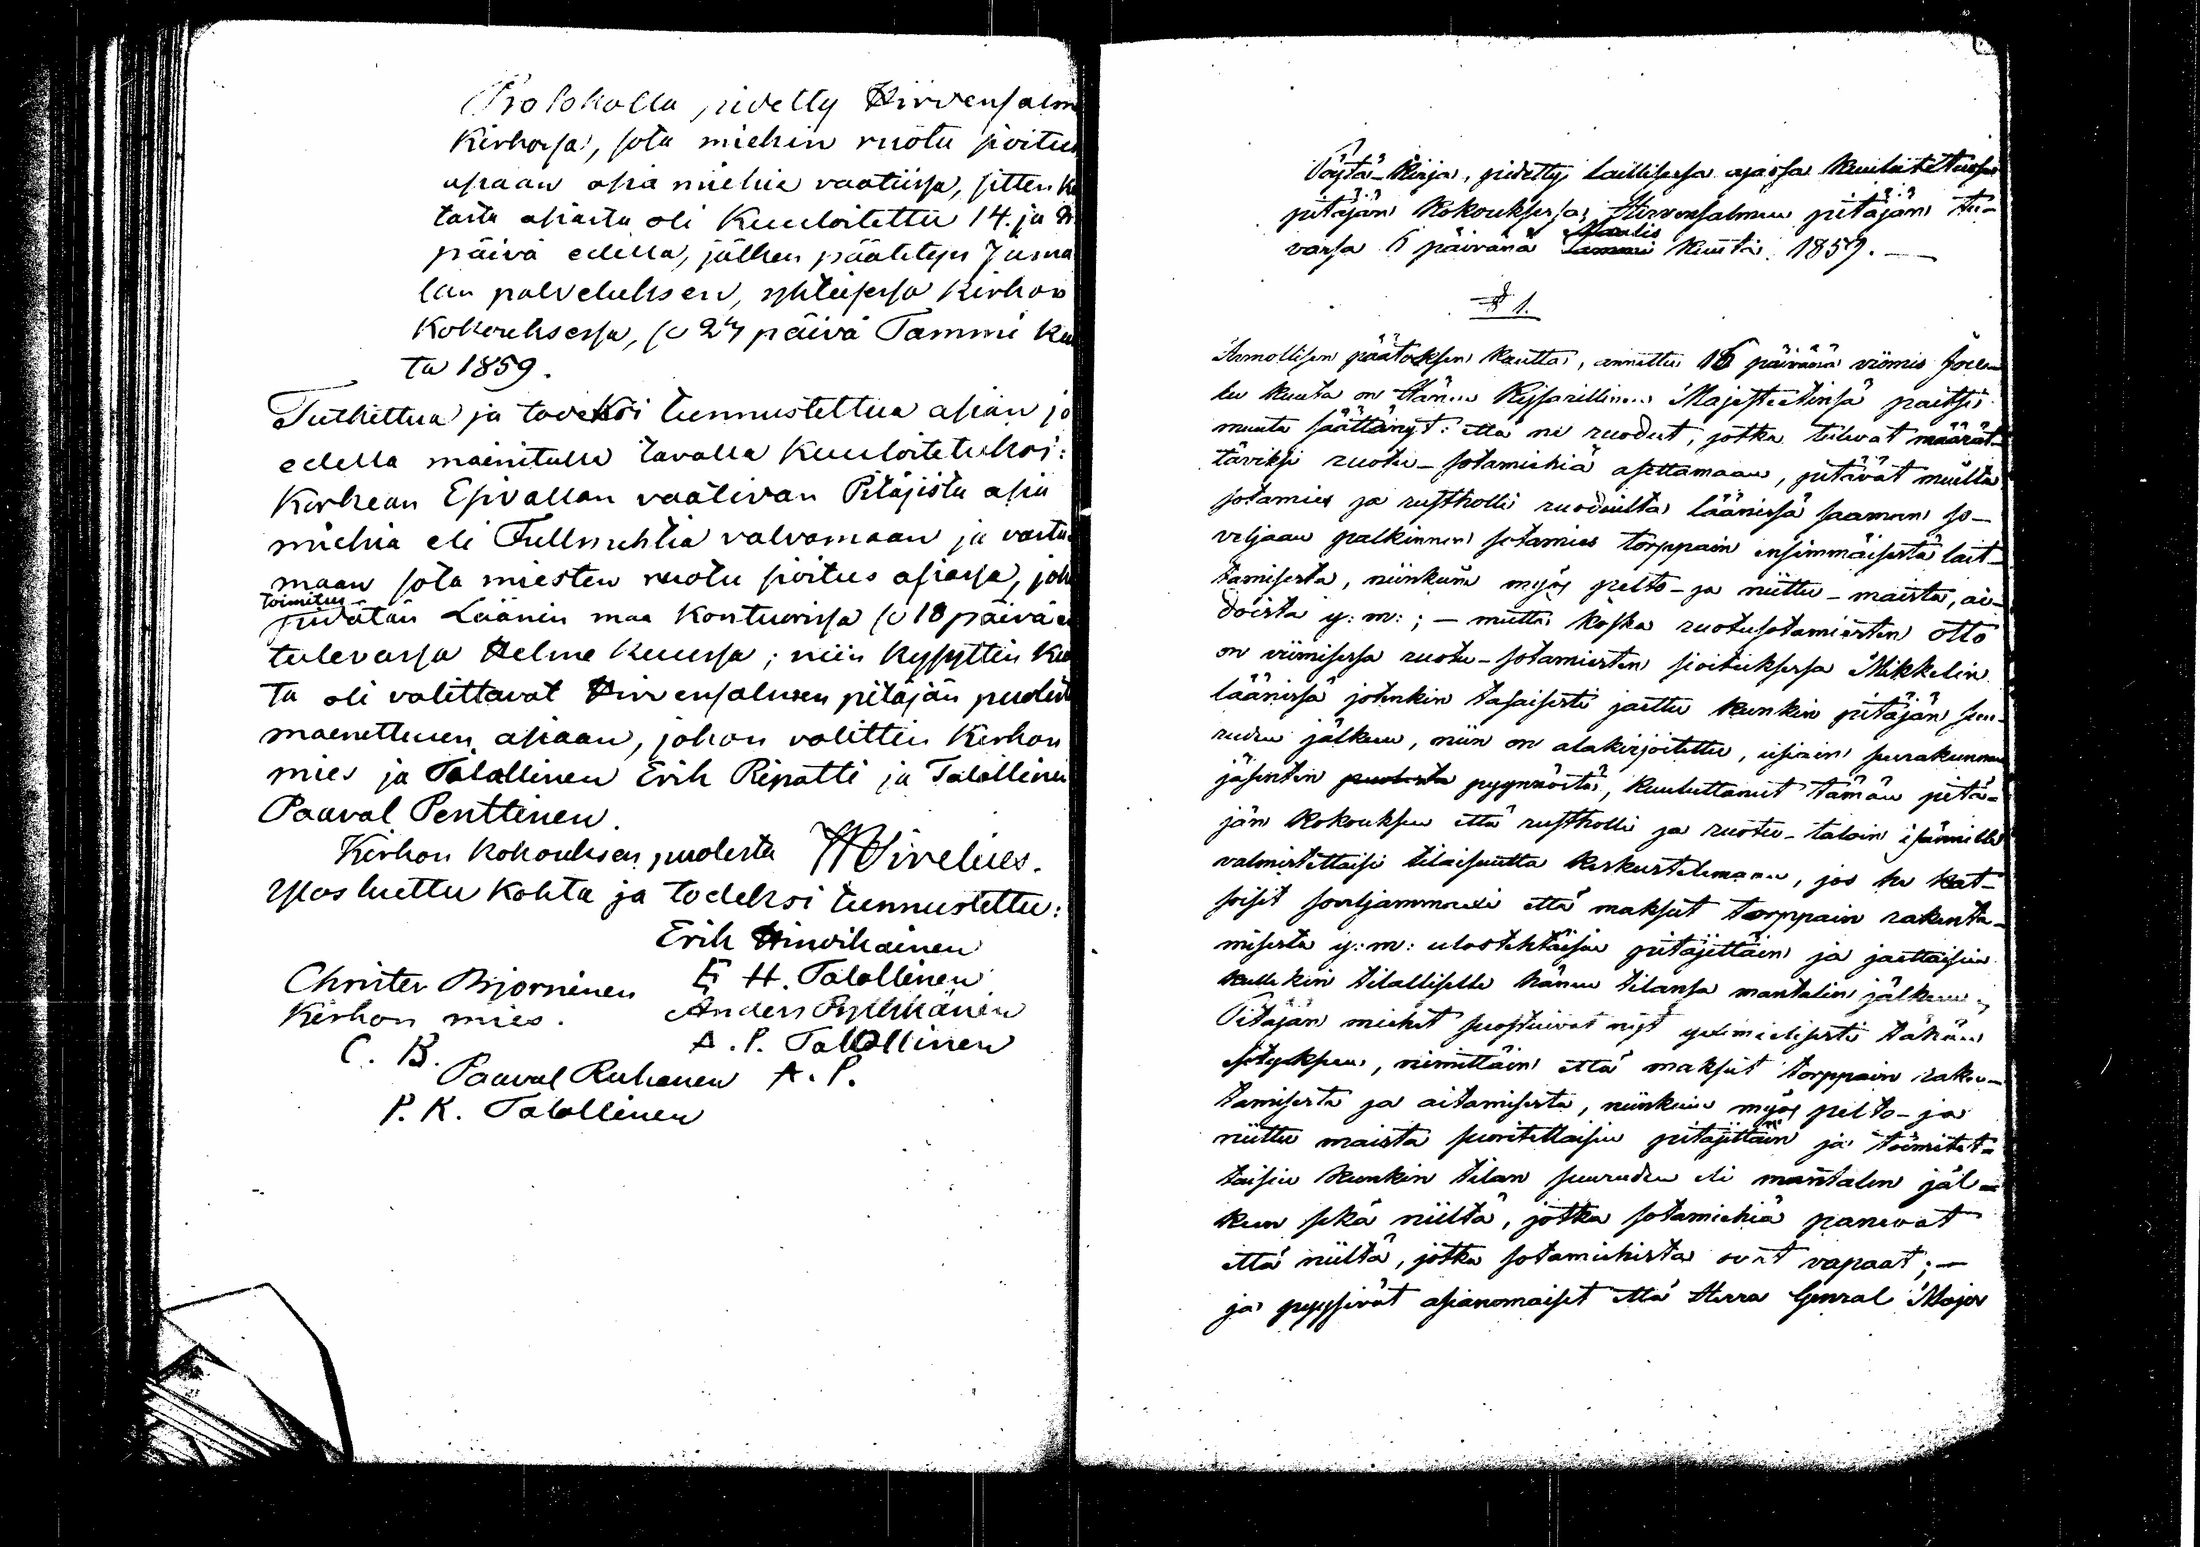 Protokolla pidetty Hirvensalm
Kirkossa, sota miehin ruotu sioitus
asiaan asia miehiä vaatiissa, sitten
tästä asiasta oli Kuuloitettu 14. ja
päivä edella, jälken päätetyn Juma
lan palveluksen, yhteisessä Kirkon
Kokouksessa, se 27 päivä Tammi ku
ta 1859.
Tutkittua ja todeksi tunnustettua asian jo
edella mainitulla tavalla Kuuloitetuksi:
Korkean Esivallan vaativan Pitäjistä asia
miehiä eli Fullmehtiä valvomaan ja vasta
maan sota miesten ruotu sioitus asiassa, joka
toimitus
pidetän Läänin maa Konttuorissa se 18 päivä
tulevassa Helme Kuussa; niin kysyttin
ta oli valittavat Hirvensalmen pitäjän puolest
maenettuen asiaan, johon valittin Kirkon
mies ja Talollinen Erik Ripatti ja Talollinen
Paaval Penttinen.
Kirkon Kokouksen puolesta WSirelius.
Ylös luettu Kohta ja todeksi tunnustettu:
Erik Hinvikainen
E H. Talollinen
Christer Bjorninen
Kirkon mies.
C. B.
Anders Pylkkänen
A. P. Talollinen
Paaval Ruhanen A. P.
P. K. Talollinen
Pöytä-Kirja, pidetty laillisessa ajassa Kuulutetussa
pitäjän Kokouksessa Hirvensalmen pitäjän tu-
vassa 6 päivänä Maalis Kuuta 1859.
§ 1.
Armollisen päätöksen kautta, annettu 16 päivänä viimis Joulu
ku Kuuta on Hänen Keisarillinen Majesteetinsä paitsi
muuta säättänyt: että ne ruodut, jotka tulevat määrät-
täviksi ruotu-sotamiehiä asettamaan, pitävät muilta
sotamies ja rustholli ruoduilta läänissä saaman so-
veljaan palkinnon sotamies torppain ensimmäisestä lait-
tamisesta, niinkuin myös pelto- ja niittu-maista, ai-
doista y: m: ; — mutta koska ruotusotamiesten otto
on viimisessä ruotu-sotamiesten sioituksessa Mikkelin
läänissä jotenkin tasaisesti jaettu kunkin pitäjän suu-
ruden jälkeen, niin on alakirjoitettu, usiain seurakunnan
jäsenten puolesta pyynnöstä, kuuluttanut tämän pitä-
jän Kokouksen että rustholli ja ruotu-taloin isännille
valmistettaisi tilaisuutta keskustelemaan, jos he kat-
soisit soveljammaxi että maksut torppain rakenta-
misesta y: m: ulostehtäisin pitäjittäin ja jaettaisin
kullekin tilalliselle hänen tilansa mantalin jälkeen;
Pitäjän miehet suostuivat nyt yximielisesti tähän
esitykseen, nimittäin että maksut torppain raken-
tamisesta ja aitamisesta, niinkuin myös pelto- ja
niittu maista suoritettaisin pitäjittäin ja toimitet-
taisin kunkin tilan suuruden eli mantalin jäl-
keen sekä niiltä, jotka sotamiehiä panevat
että niiltä, jotka sotamiehistä ovat vapaat; —
ja pyysivät asianomaiset että Herra General Major